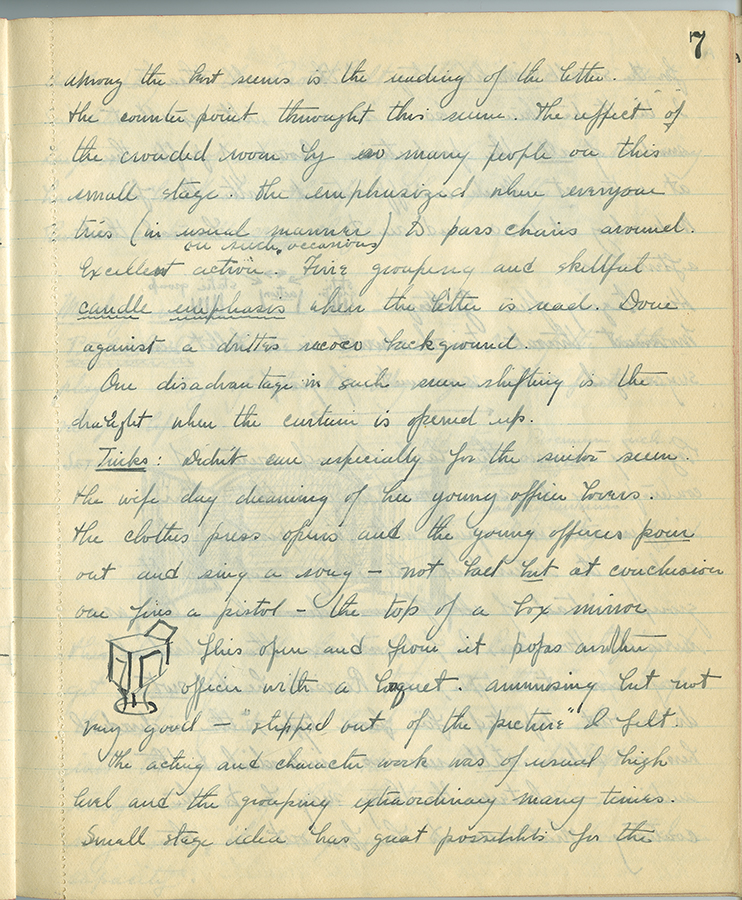 7
among the best scenes is the reading of the letter.
the counter point throught this scene. The effect of
the crowded room by so many people on this
small stage. The emphasized when everyone
tries (in usual manner) to pass chairs around.
on such occasions
Excellent action. Fine grouping and skillful
candle emphasis when the letter is read. Done
against a rococo background.
One disadvantage in such scene shifting is the
draught when the curtain is opened up.
Tricks: Didn't care especially for the suitor scene.
the wife day dreaming of her young officer lovers.
the clothes press opens and the young officers pour
out and sing a song – not bad but at conclusion
one fires a pistol – the top of a box mirror
flies open and from it pops another
officer with a boquet. ammusing but not
very good – "stepped out of the picture" I felt.
The acting and character work was of usual high
level and the grouping extraordinary many times.
Small stage idea has great possibilits for the